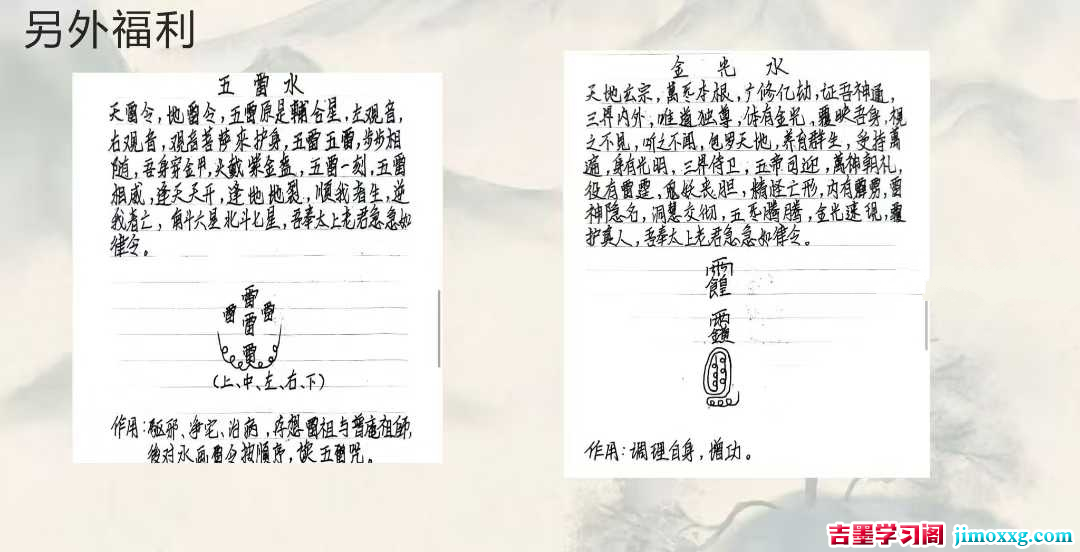 另外福利
五雷水
天雷令，地雷令，五雷原是辅合星，左观音，
右观音，观音菩萨来护身，五雷五雷，步步相
随，吾身穿金甲，头戴紫金盔，五雷一刻，五雷
相威，逢天天开，逢地地裂，顺我者生，逆
我者亡，南斗六星北斗七星，吾奉太上老君急急如
律令。
雷
雷 雷 雷
雷
(上、中、左、右、下)
作用：驱邪、净宅、治病，存想雷祖与普庵祖师，
後对水画雷令按顺序，念五雷咒。
金光水
天地玄宗，萬炁本根，广修亿劫，证吾神通，
三界内外，唯道独尊，体有金光，覆映吾身，视
之不见，听之不闻，包罗天地，养育群生，受持萬
遍，身有光明，三界侍卫，五帝司迎，萬神朝礼，
役有雷霆，鬼妖丧胆，精怪亡形，内有霹雳，雷
神隐名，洞慧交彻，五炁腾腾，金光速现，覆
护真人，吾奉太上老君急急如律令。
作用：调理自身，增功。
吉墨学习阁 jimoxxg.com